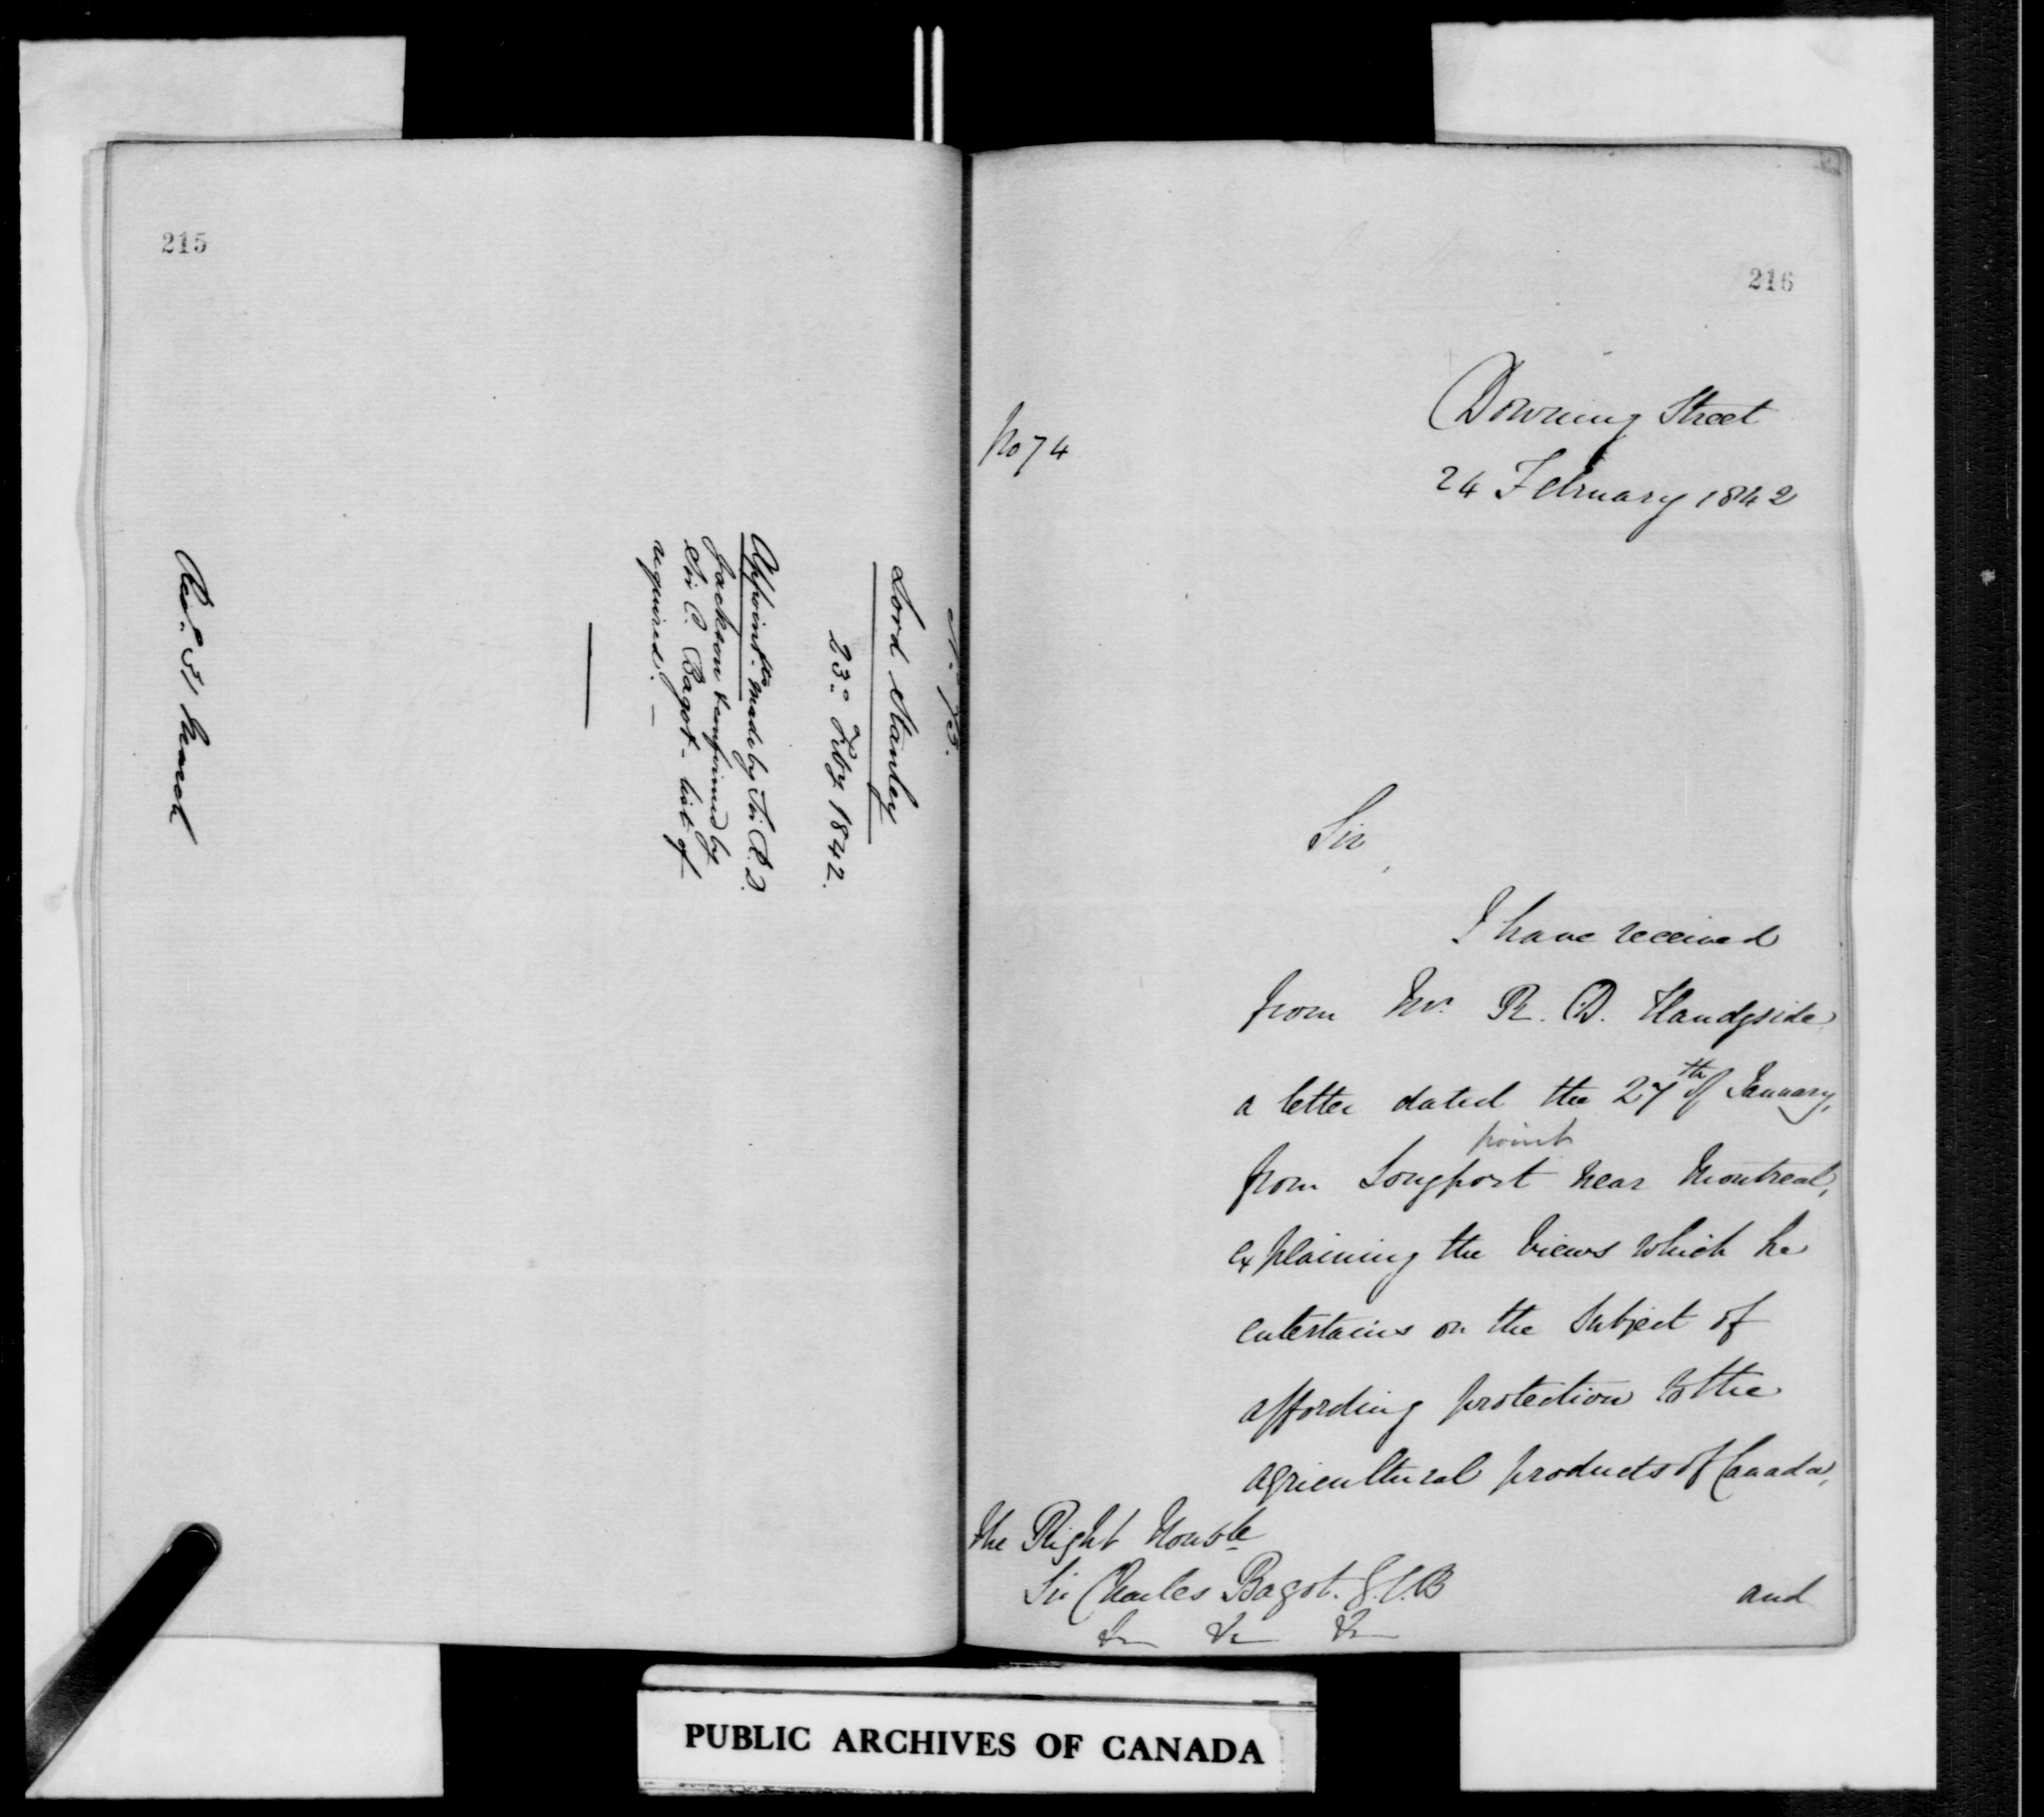 215
No. 73.
Lord Stanley
23d Feby 1842.
Appointmts made by Sir R. D.
Jackson confirmed by
Sir C. Bagot - list of
required. -
Recd 31 March
216
Downing Street
No 74
24 February 1842
Sir,
I have received
from Mr. R. D. Handyside
a letter dated the 27th of January,
point
from Longport near Montreal,
explaining the views which he
entertains on the subject of
affording protection to the
agricultural products of Canada,
The Right Honble
Sir Charles Bagot. G.C.B
and
&c &c &c
PUBLIC ARCHIVES OF CANADA